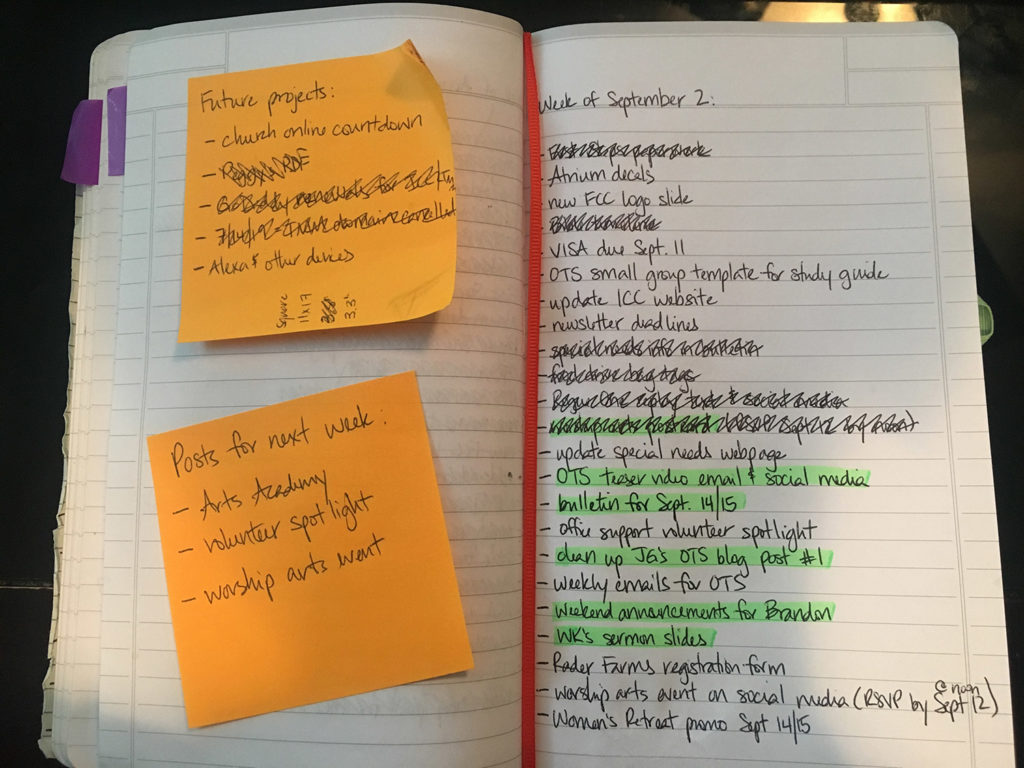 Future projects:
- church online countdown
-
-
-
- Alexa & other devices
square
11x17
3.3"
Posts for next week:
- Arts Academy
- volunteer spotlight
- worship arts event
Week of September 2:
-
- Atrium decals
- new FCC logo slide
-
- VISA due Sept. 11
- OTS small group template for study guide
- update ICC website
- newsletter deadlines
-
-
-
-
- update special needs webpage
- OTS teaser video email & social media
- bulletin for Sept. 14/15
- office support volunteer spotlight
- clean up JG's OTS blog post #1
- weekly emails for OTS
- weekend announcements for Brandon
- WK's sermon slides
- Rader Farms registration form
- worship arts event on social media (RSVP by Sept 12 @ noon)
- Women's Retreat promo Sept 14/15